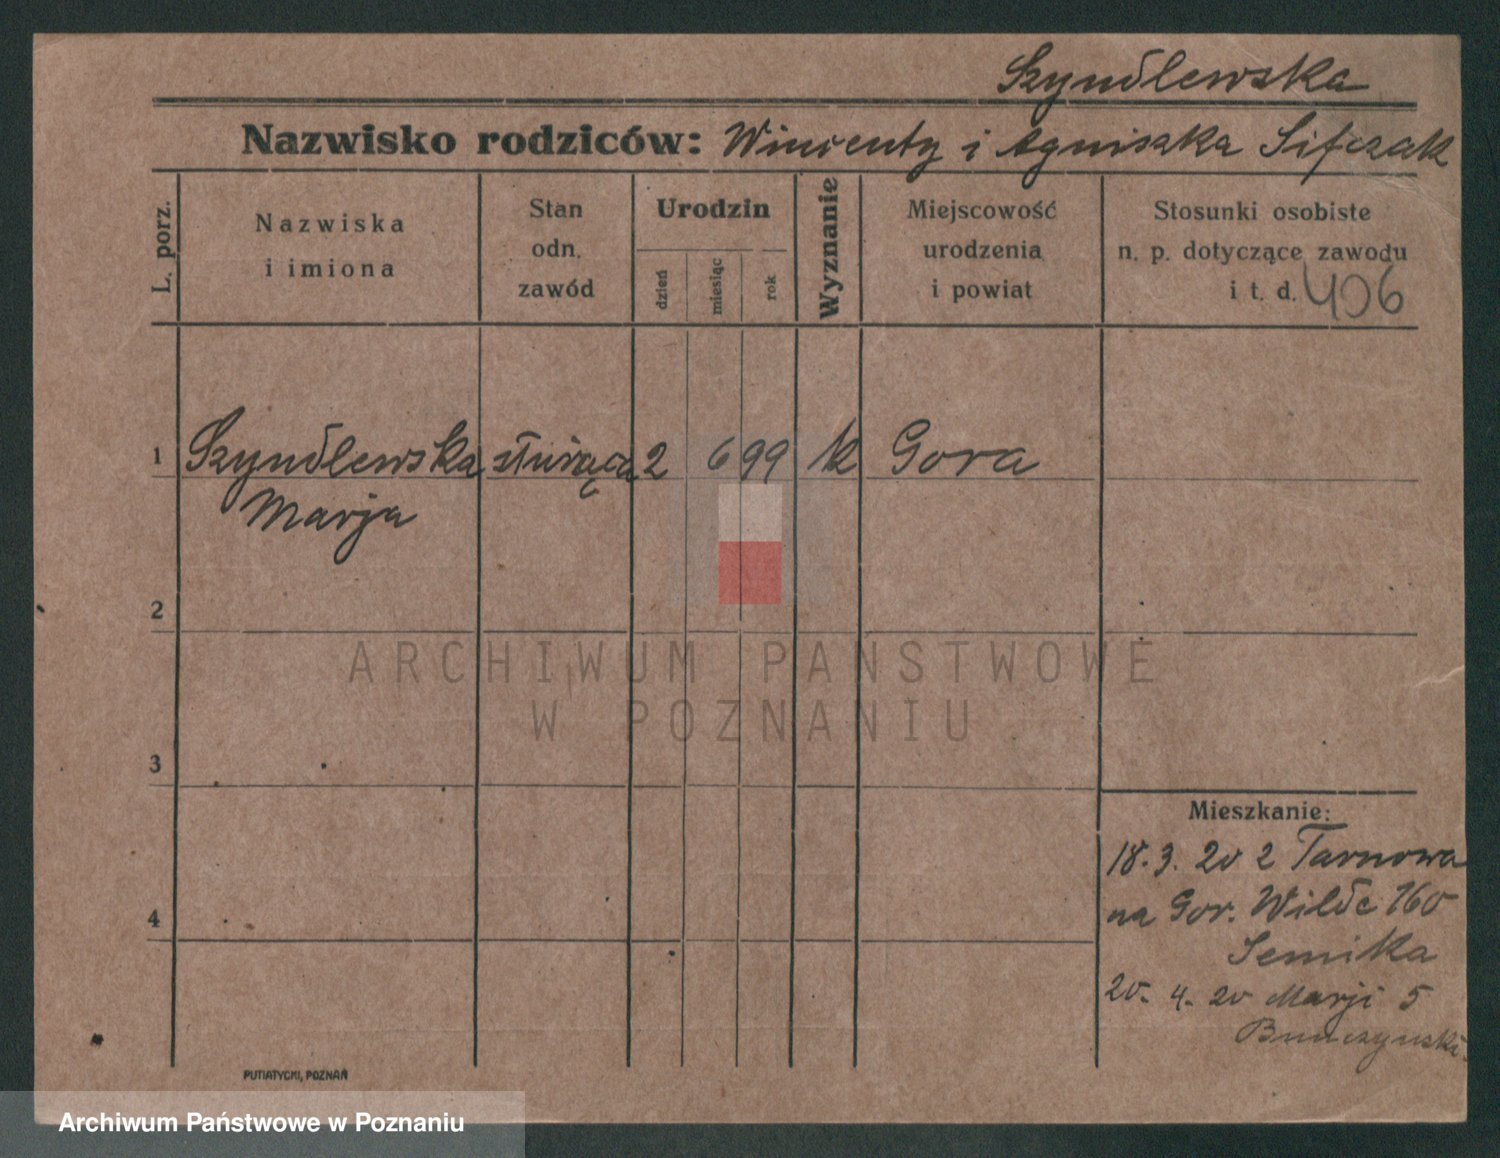 Szyndlewska
Nazwisko rodziców: Wincenty i Agniszka
L. porz.
Nazwiska
i imiona
Stan
odn.
zawód
Urodzin
dzień
miesiąc
rok
Wyznanie
Miejscowość
urodzenia
i powiat
Stosunki osobiste
n. p. dotyczące zawodu
i t. d. 406
1 Szyndlewska służąca 2 6 99 k Gora
Marja
2
3
4
Mieszkanie:
18. 3. 20 z Tarnowa
na Gor. Wilde 160
Semika
20. 4. 20 Marji 5
PUTIATYCKI, POZNAŃ
ARCHIWUM PAŃSTWOWE
W POZNANIU
Archiwum Państwowe w Poznaniu